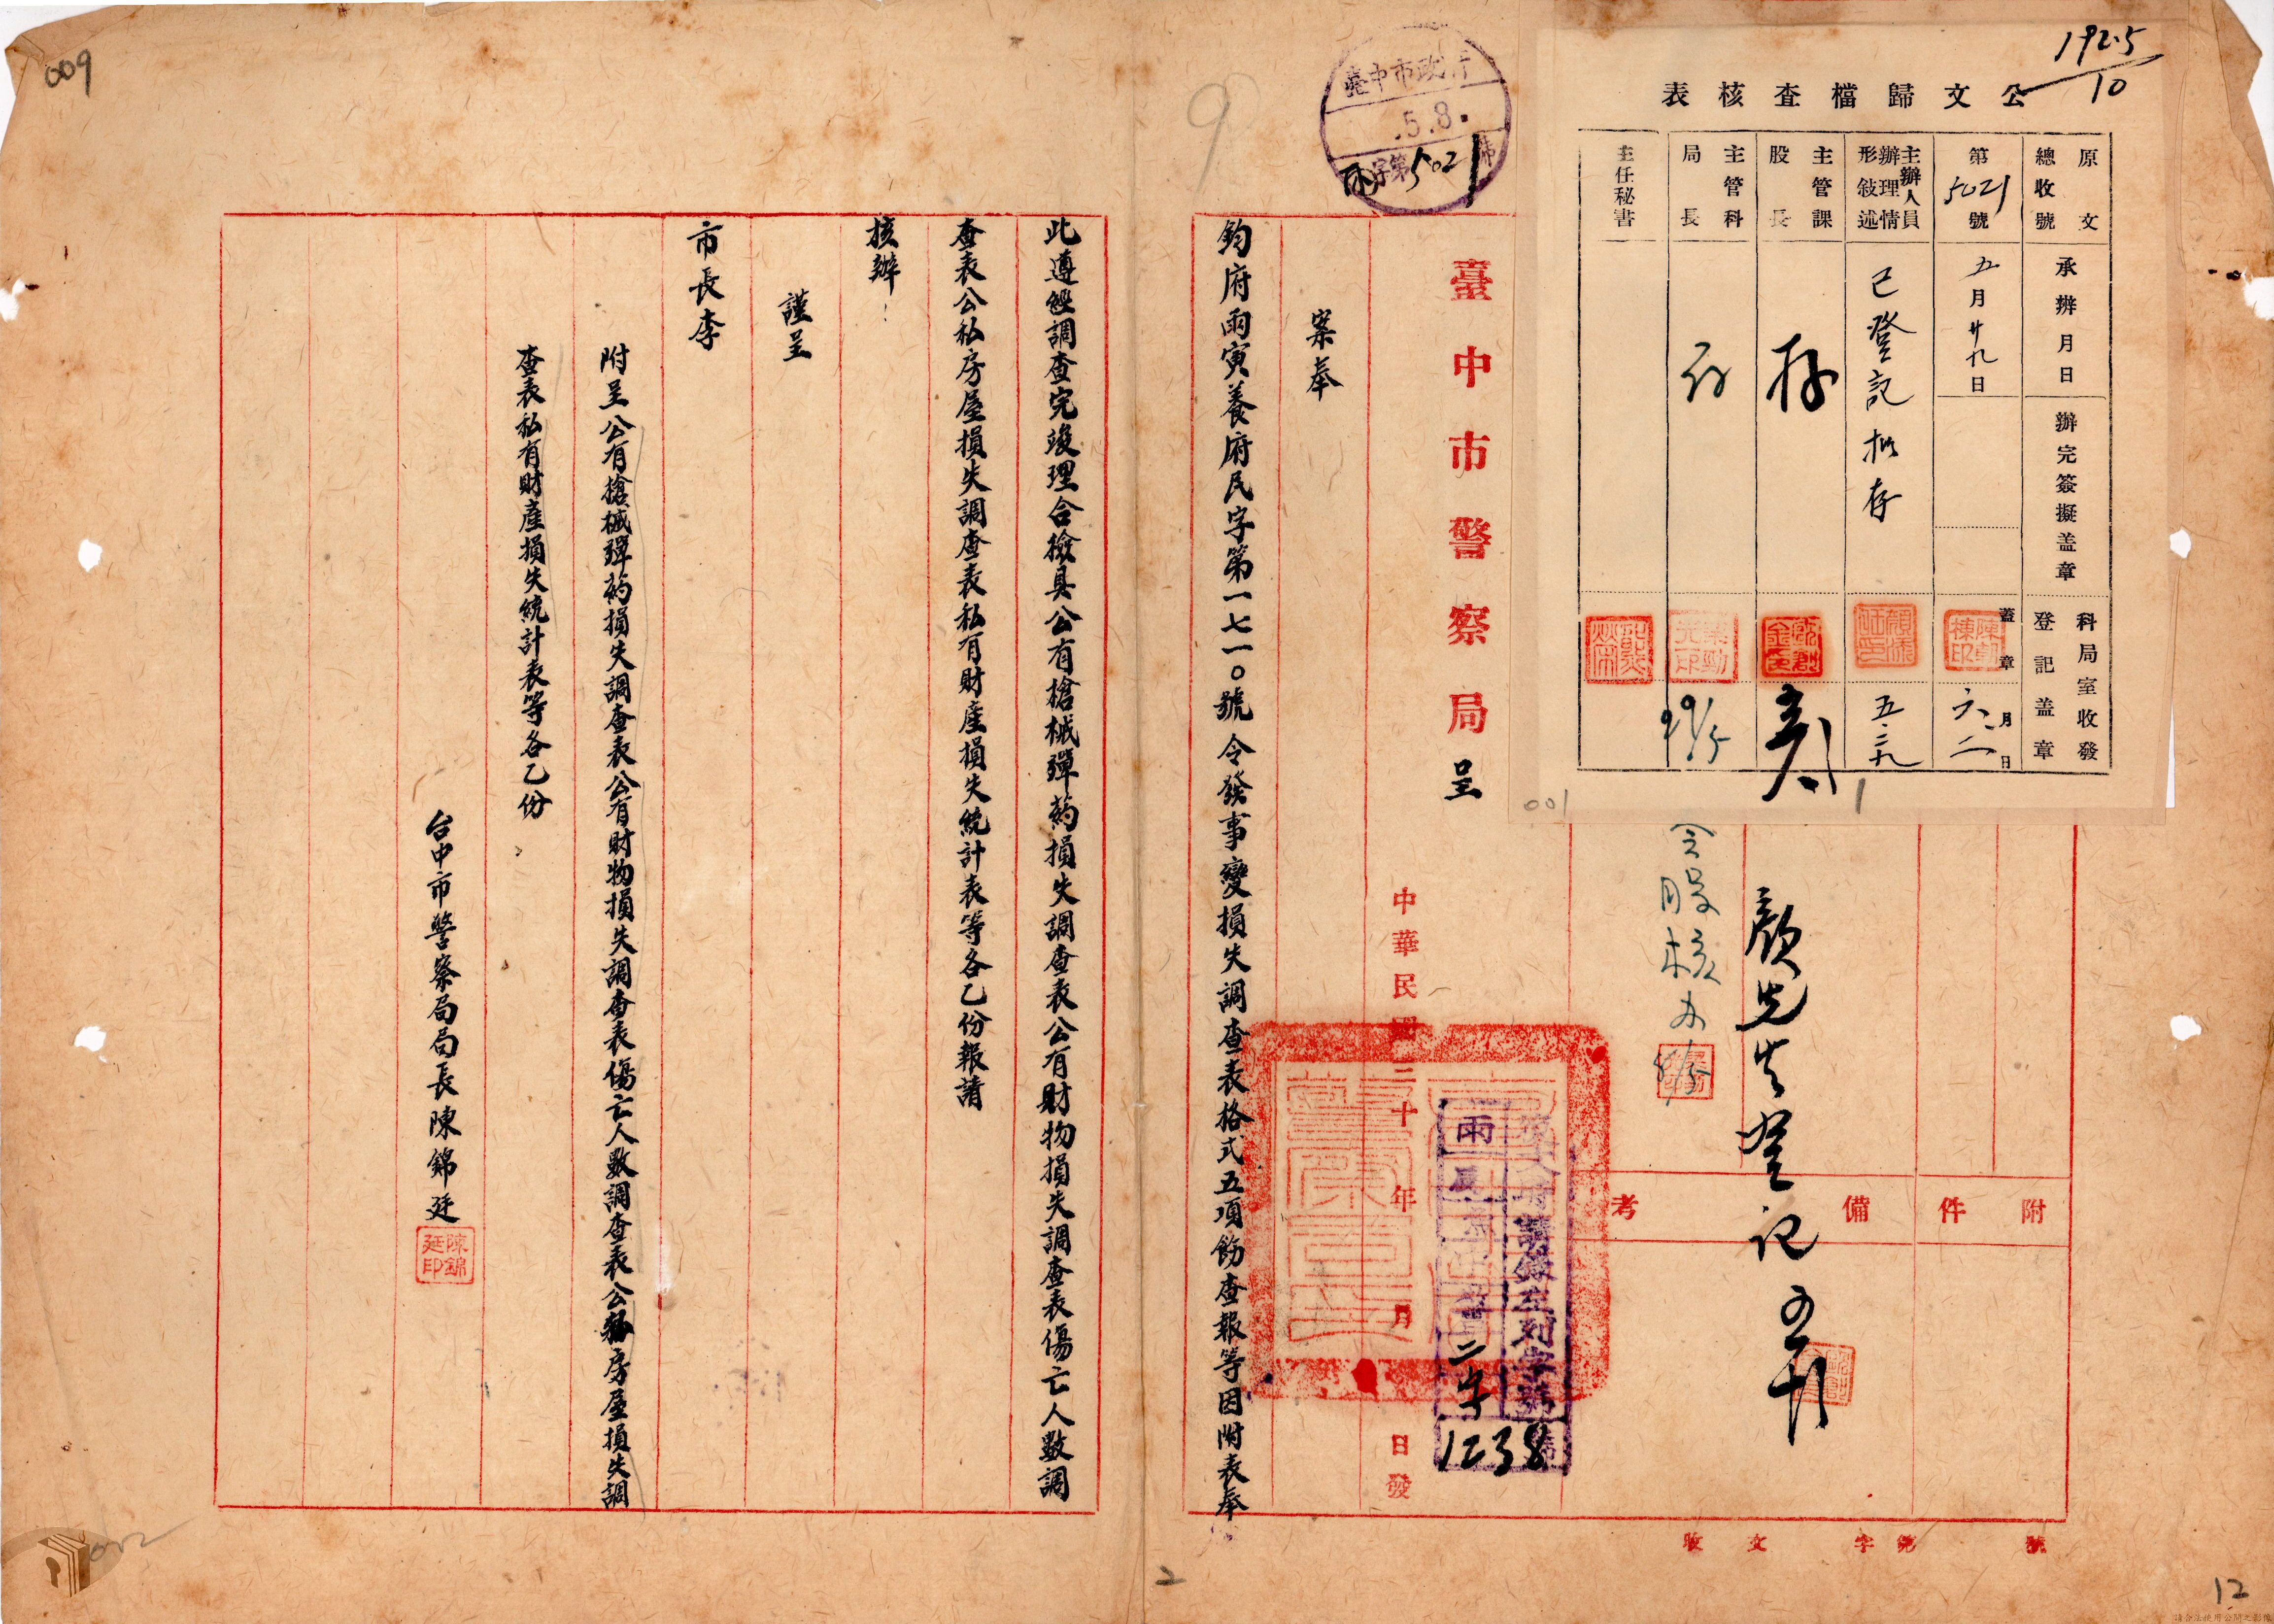 192.5
10
公文歸檔查核表
原文
總收號
第5021號
主辦人員
辦理情
形敍述
主管課
股長
主管科
局長
主任秘書
承辦月日
五月廿九日
已登記擬存
存
辦完簽擬盖章
科局室收發
登記盖章
蓋章
六月二日
五.二九
29/5
001
臺中市政府
.5.8.
字第5021號
9
009
臺中市警察局呈
附件
備考
顏先生登記
中華民國三十年月日發
二字
1238
收文字第號
案奉
鈞府雨寅養府民字第一七一〇號令發事變損失調查表格式五項飭查報等因附表奉
此遵經調查完竣理合撿具公有槍械彈葯損失調查表公有財物損失調查表傷亡人數調
查表公私房屋損失調查表私有財產損失統計表等各乙份報請
核辦
謹呈
市長李
附呈公有槍械彈葯損失調查表公有財物損失調查表傷亡人數調查表公私房屋損失調
查表私有財產損失統計表等各乙份
台中市警察局局長陳錦廷
陳錦
廷印
2
12